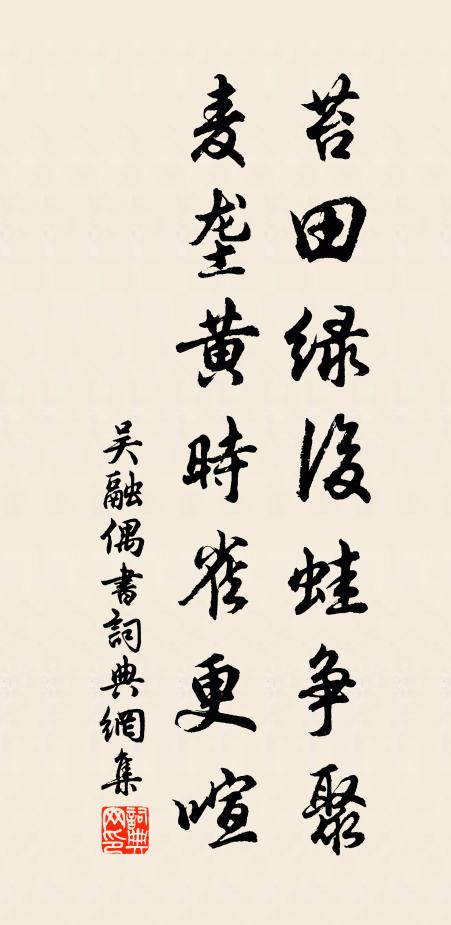 苔田绿後蛙争聚
麦垄黄時雀更喧
吴融偶書詞典網集
詞典网印